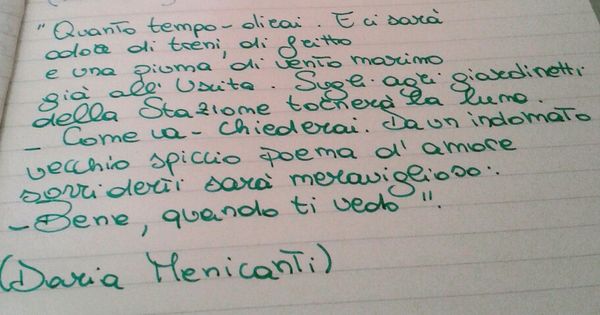 " Quanto tempo - dirai. E ci sarà
odore di treni, di fritto
e una piuma di vento marino
già all' uscita. Sugli agri giardinetti
della Stazione tornerà la luna.
- Come va - chiederai. Da un indomato
vecchio spiccio poema d' amore
sorriderti sarà meraviglioso:.
- Bene, quando ti vedo ".
(Daria Menicanti)